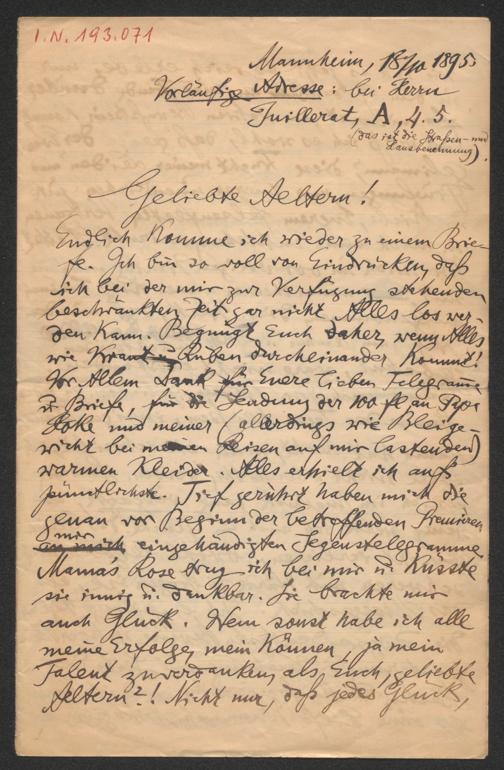 I.N. 193.071
Mannheim, 18/10 1895.
Vorläufige Adresse: bei Herrn
Juillerat, A, 4. 5.
(das ist die Straßen- und
Hausbenennung).
Geliebte Aeltern!
Endlich komme ich wieder zu einem Brie-
fe. Ich bin so voll von Eindrücken, daß
ich bei der mir zur Verfügung stehenden
beschränkten Zeit gar nicht Alles los wer-
den kann. Begnügt Euch daher, wenn Alles
wie Kraut u. Ruben durcheinander kommt!
Vor Allem Dank für Euere lieben Telegramme
u. Briefe, für die Sendung der 100 fl an
und meiner (allerdings wie Bleige-
wicht bei meinen Reisen auf mir lastenden)
warmen Kleider. Alles erhielt ich aufs
pünktlichste. Tief gerührt haben mich die
genau vor Beginn der betreffenden Premièren
mir
an mich eingehändigten Segenstelegramme.
Mama's Rose trug ich bei mir u. küsste
sie innig u. dankbar. Sie brachte mir
auch Glück. Wem sonst habe ich alle
meine Erfolge, mein Können, ja mein
Talent zu verdanken, als Euch, geliebte
Aeltern?! Nicht nur, daß jedes Glück,